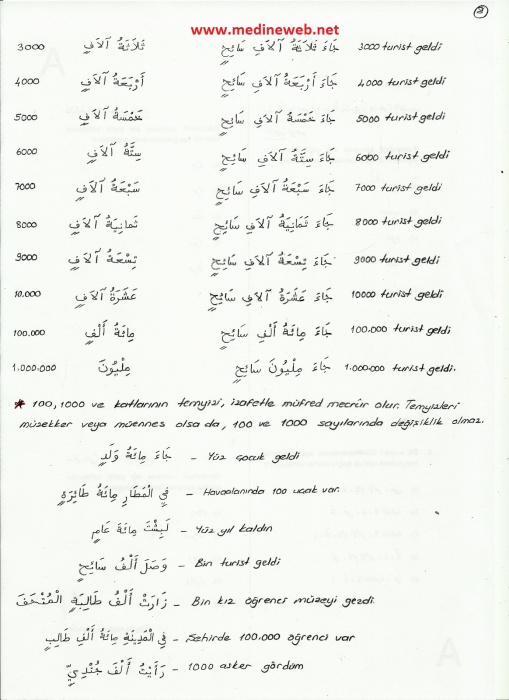 3
www.medineweb.net
3000 ثَلَاثَةُ آلَافٍ جَاءَ ثَلَاثَةُ آلَافِ سَائِحٍ 3000 turist geldi
4000 أَرْبَعَةُ آلَافٍ جَاءَ أَرْبَعَةُ آلَافِ سَائِحٍ 4000 turist geldi
5000 خَمْسَةُ آلَافٍ جَاءَ خَمْسَةُ آلَافِ سَائِحٍ 5000 turist geldi
6000 سِتَّةُ آلَافٍ جَاءَ سِتَّةُ آلَافِ سَائِحٍ 6000 turist geldi
7000 سَبْعَةُ آلَافٍ جَاءَ سَبْعَةُ آلَافِ سَائِحٍ 7000 turist geldi
8000 ثَمَانِيَةُ آلَافٍ جَاءَ ثَمَانِيَةُ آلَافِ سَائِحٍ 8000 turist geldi
9000 تِسْعَةُ آلَافٍ جَاءَ تِسْعَةُ آلَافِ سَائِحٍ 9000 turist geldi
10.000 عَشَرَةُ آلَافٍ جَاءَ عَشَرَةُ آلَافِ سَائِحٍ 10000 turist geldi
100.000 مِائَةُ أَلْفٍ جَاءَ مِائَةُ أَلْفِ سَائِحٍ 100.000 turist geldi
1.000.000 مِلْيُونَ جَاءَ مِلْيُونَ سَائِحٍ 1.000.000 turist geldi.
* 100, 1000 ve katlarının temyizi, izafetle müfred mecrûr olur. Temyizleri
müzekker veya müennes olsa da, 100 ve 1000 sayılarında değişiklik olmaz.
جَاءَ مِائَةُ وَلَدٍ - Yüz çocuk geldi
فِي الْمَطَارِ مِائَةُ طَائِرَةٍ - Havaalanında 100 uçak var.
لَبِثْتَ مِائَةَ عَامٍ - Yüz yıl kaldın
وَصَلَ أَلْفُ سَائِحٍ - Bin turist geldi
زَارَتْ أَلْفُ طَالِبَةٍ الْمُتْحَفَ - Bin kız öğrenci müzeyi gezdi.
فِي الْمَدِينَةِ مِائَةُ أَلْفِ طَالِبٍ - Şehirde 100.000 öğrenci var
رَأَيْتُ أَلْفَ جُنْدِيٍّ - 1000 asker gördüm